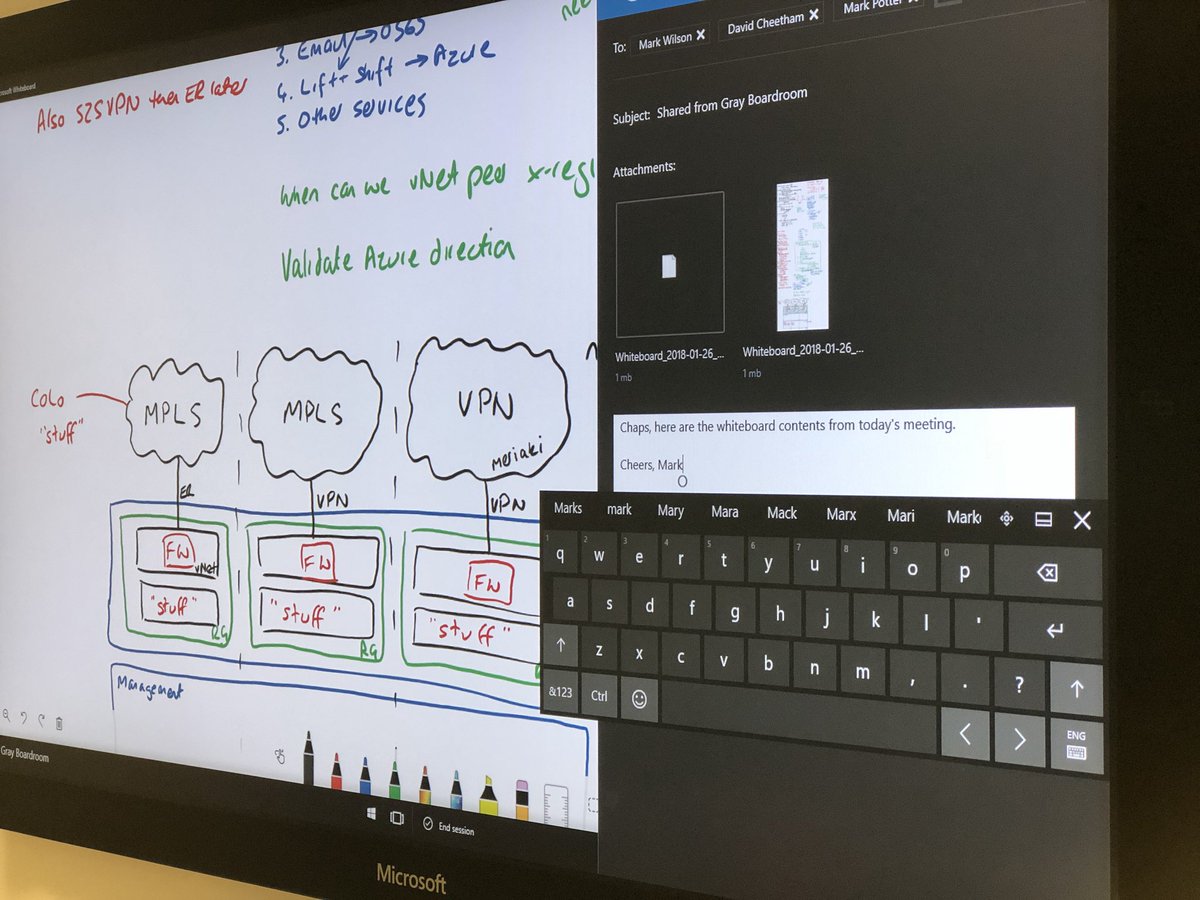 nee
3. Email → O365
4. Lift + shift → Azure
5. Other services
Microsoft Whiteboard
Also S2S VPN then ER later
When can we vNet peer x-regi
Validate Azure direction
COLO
"stuff"
MPLS
MPLS
VPN
Meriaki
ER
VPN
VPN
FW
vNet
FW
FW
"stuff"
"stuff"
"stuff"
RG
RG
Management
Gray Boardroom
End session
Microsoft
To: Mark Wilson David Cheetham Mark Potter
Subject: Shared from Gray Boardroom
Attachments:
Whiteboard_2018-01-26_...
1 mb
Whiteboard_2018-01-26_...
1 mb
Chaps, here are the whiteboard contents from today's meeting.
Cheers, Mark
Marks mark Mary Mara Mack Marx Mari Mark
1 q 2 w 3 e 4 r 5 t 6 y 7 u 8 i 9 o 0 p
a s d f g h j k l '
z x c v b n m , . ?
&123 Ctrl ENG